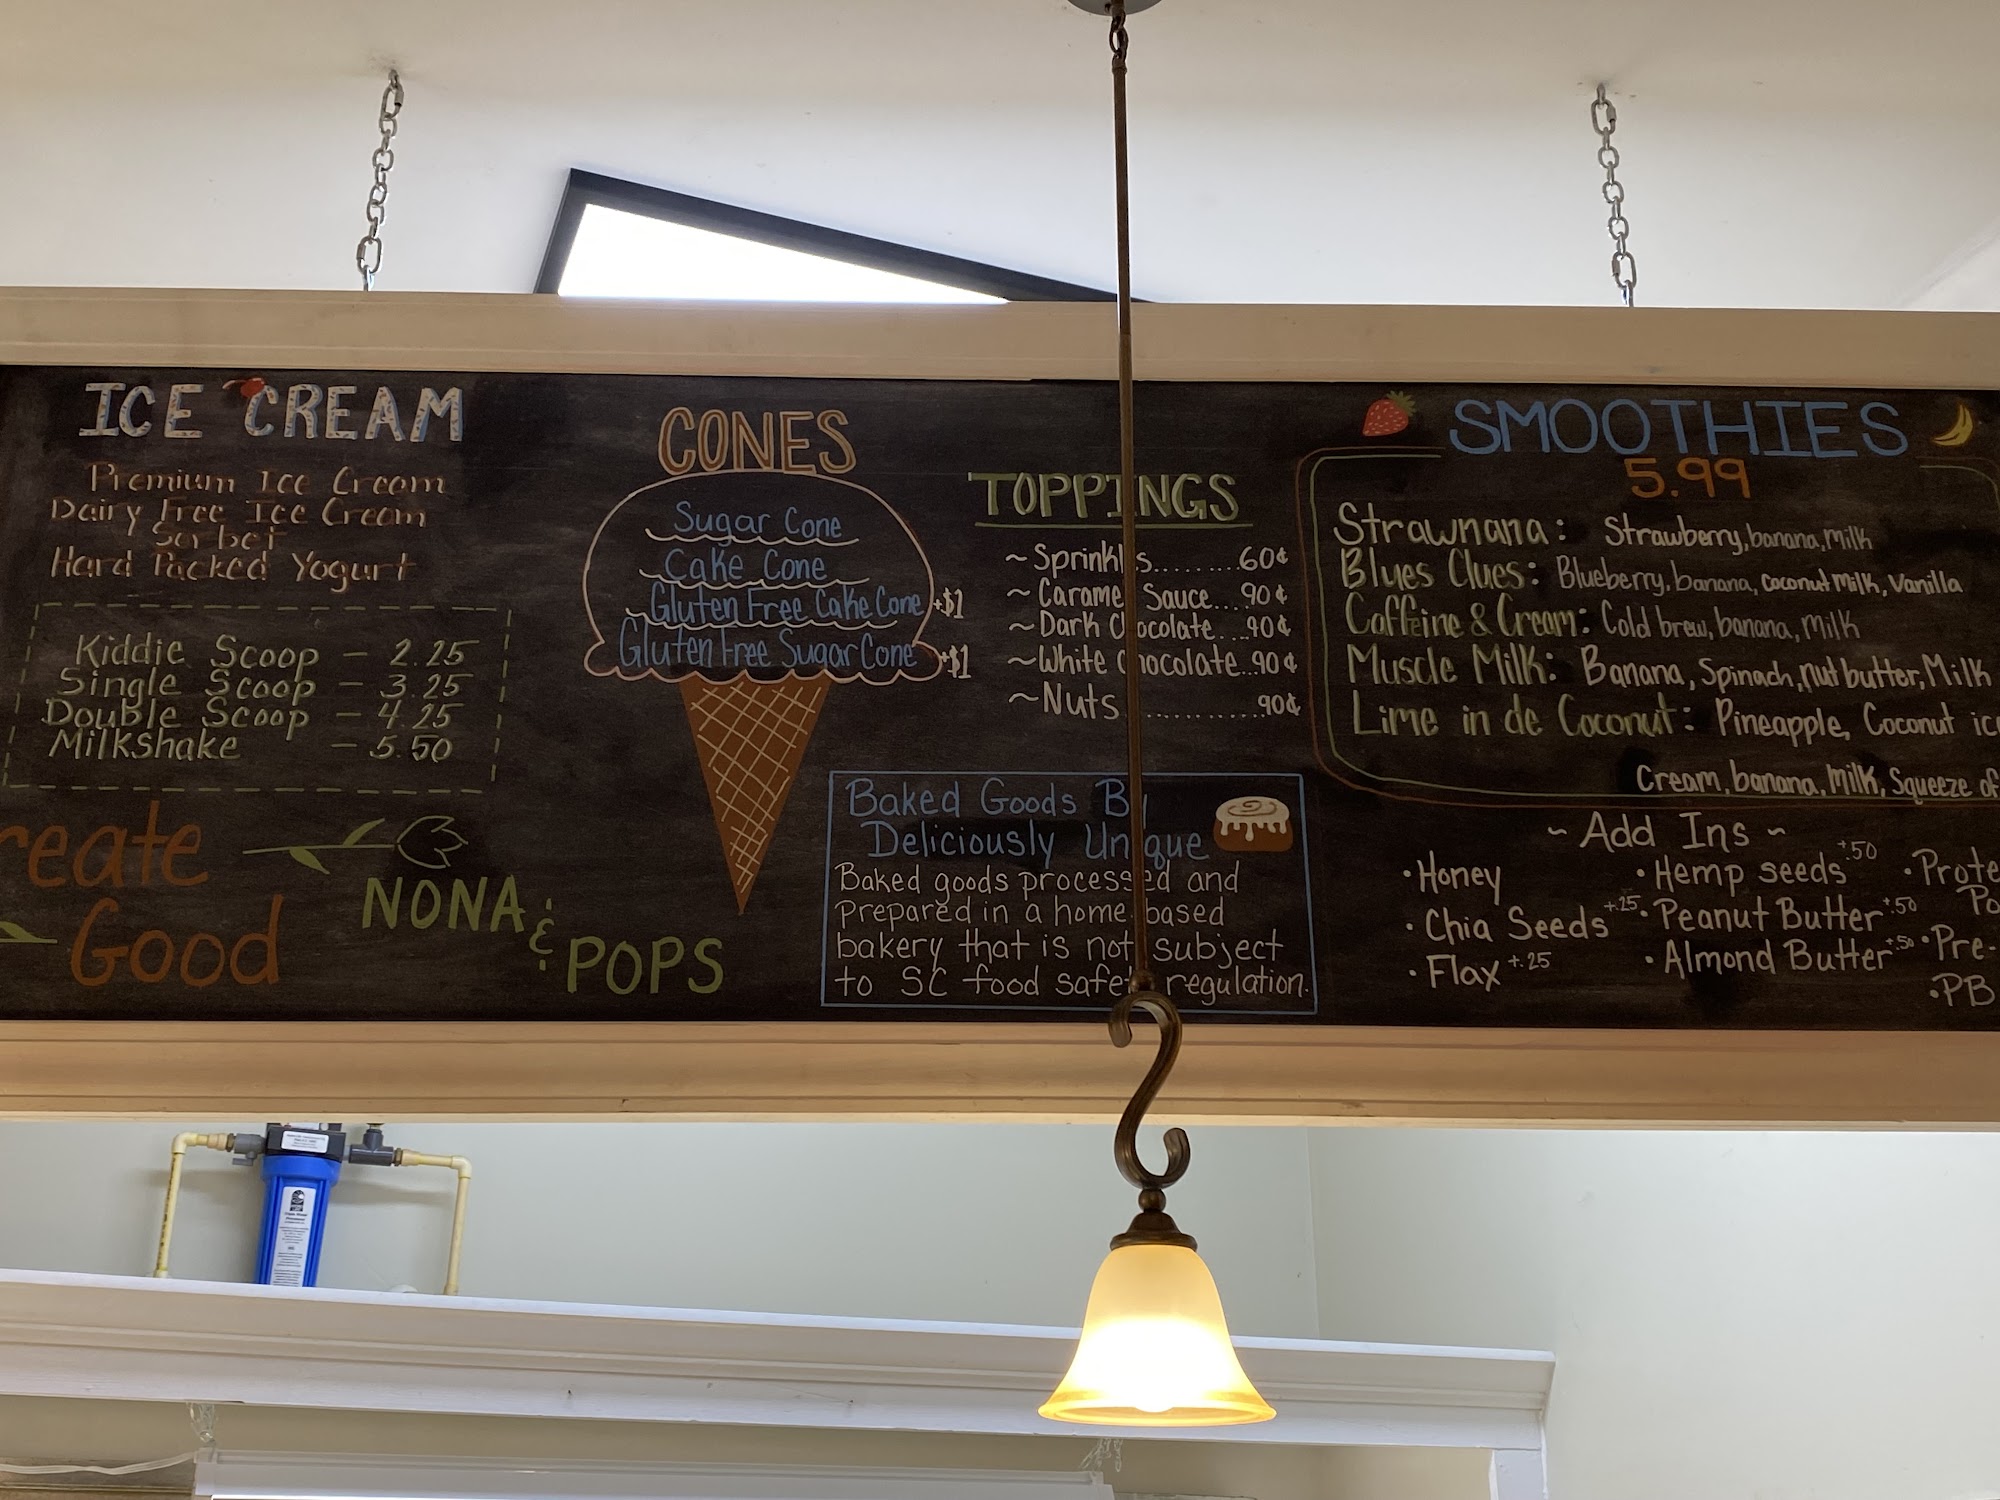 ICE CREAM
Premium Ice Cream
Dairy Free Ice Cream
Sorbet
Hard Packed Yogurt
Kiddie Scoop - 2.25
Single Scoop - 3.25
Double Scoop - 4.25
Milkshake - 5.50
reate
Good
NONA
&
POPS
CONES
Sugar Cone
Cake Cone
Gluten Free Cake Cone +$1
Gluten Free Sugar Cone +$1
TOPPINGS
~ Sprinkl s.........60¢
~ Carame Sauce....90¢
~ Dark C ocolate....90¢
~ White C ocolate...90¢
~ Nuts ............90¢
Baked Goods By
Deliciously Unique
Baked goods processed and
prepared in a home based
bakery that is not subject
to SC food safety regulation.
SMOOTHIES
5.99
Strawnana: Strawberry, banana, Milk
Blues Clues: Blueberry, banana, coconut Milk, Vanilla
Caffeine & Cream: Cold brew, banana, Milk
Muscle Milk: Banana, Spinach, Nut butter, Milk
Lime in de Coconut: Pineapple, Coconut ic
Cream, banana, Milk, Squeeze of
~ Add Ins ~
• Honey
• Chia Seeds +.25
• Flax +.25
• Hemp seeds +.50
• Peanut Butter +.50
• Almond Butter +.50
• Prote
Po
• Pre-
• PB